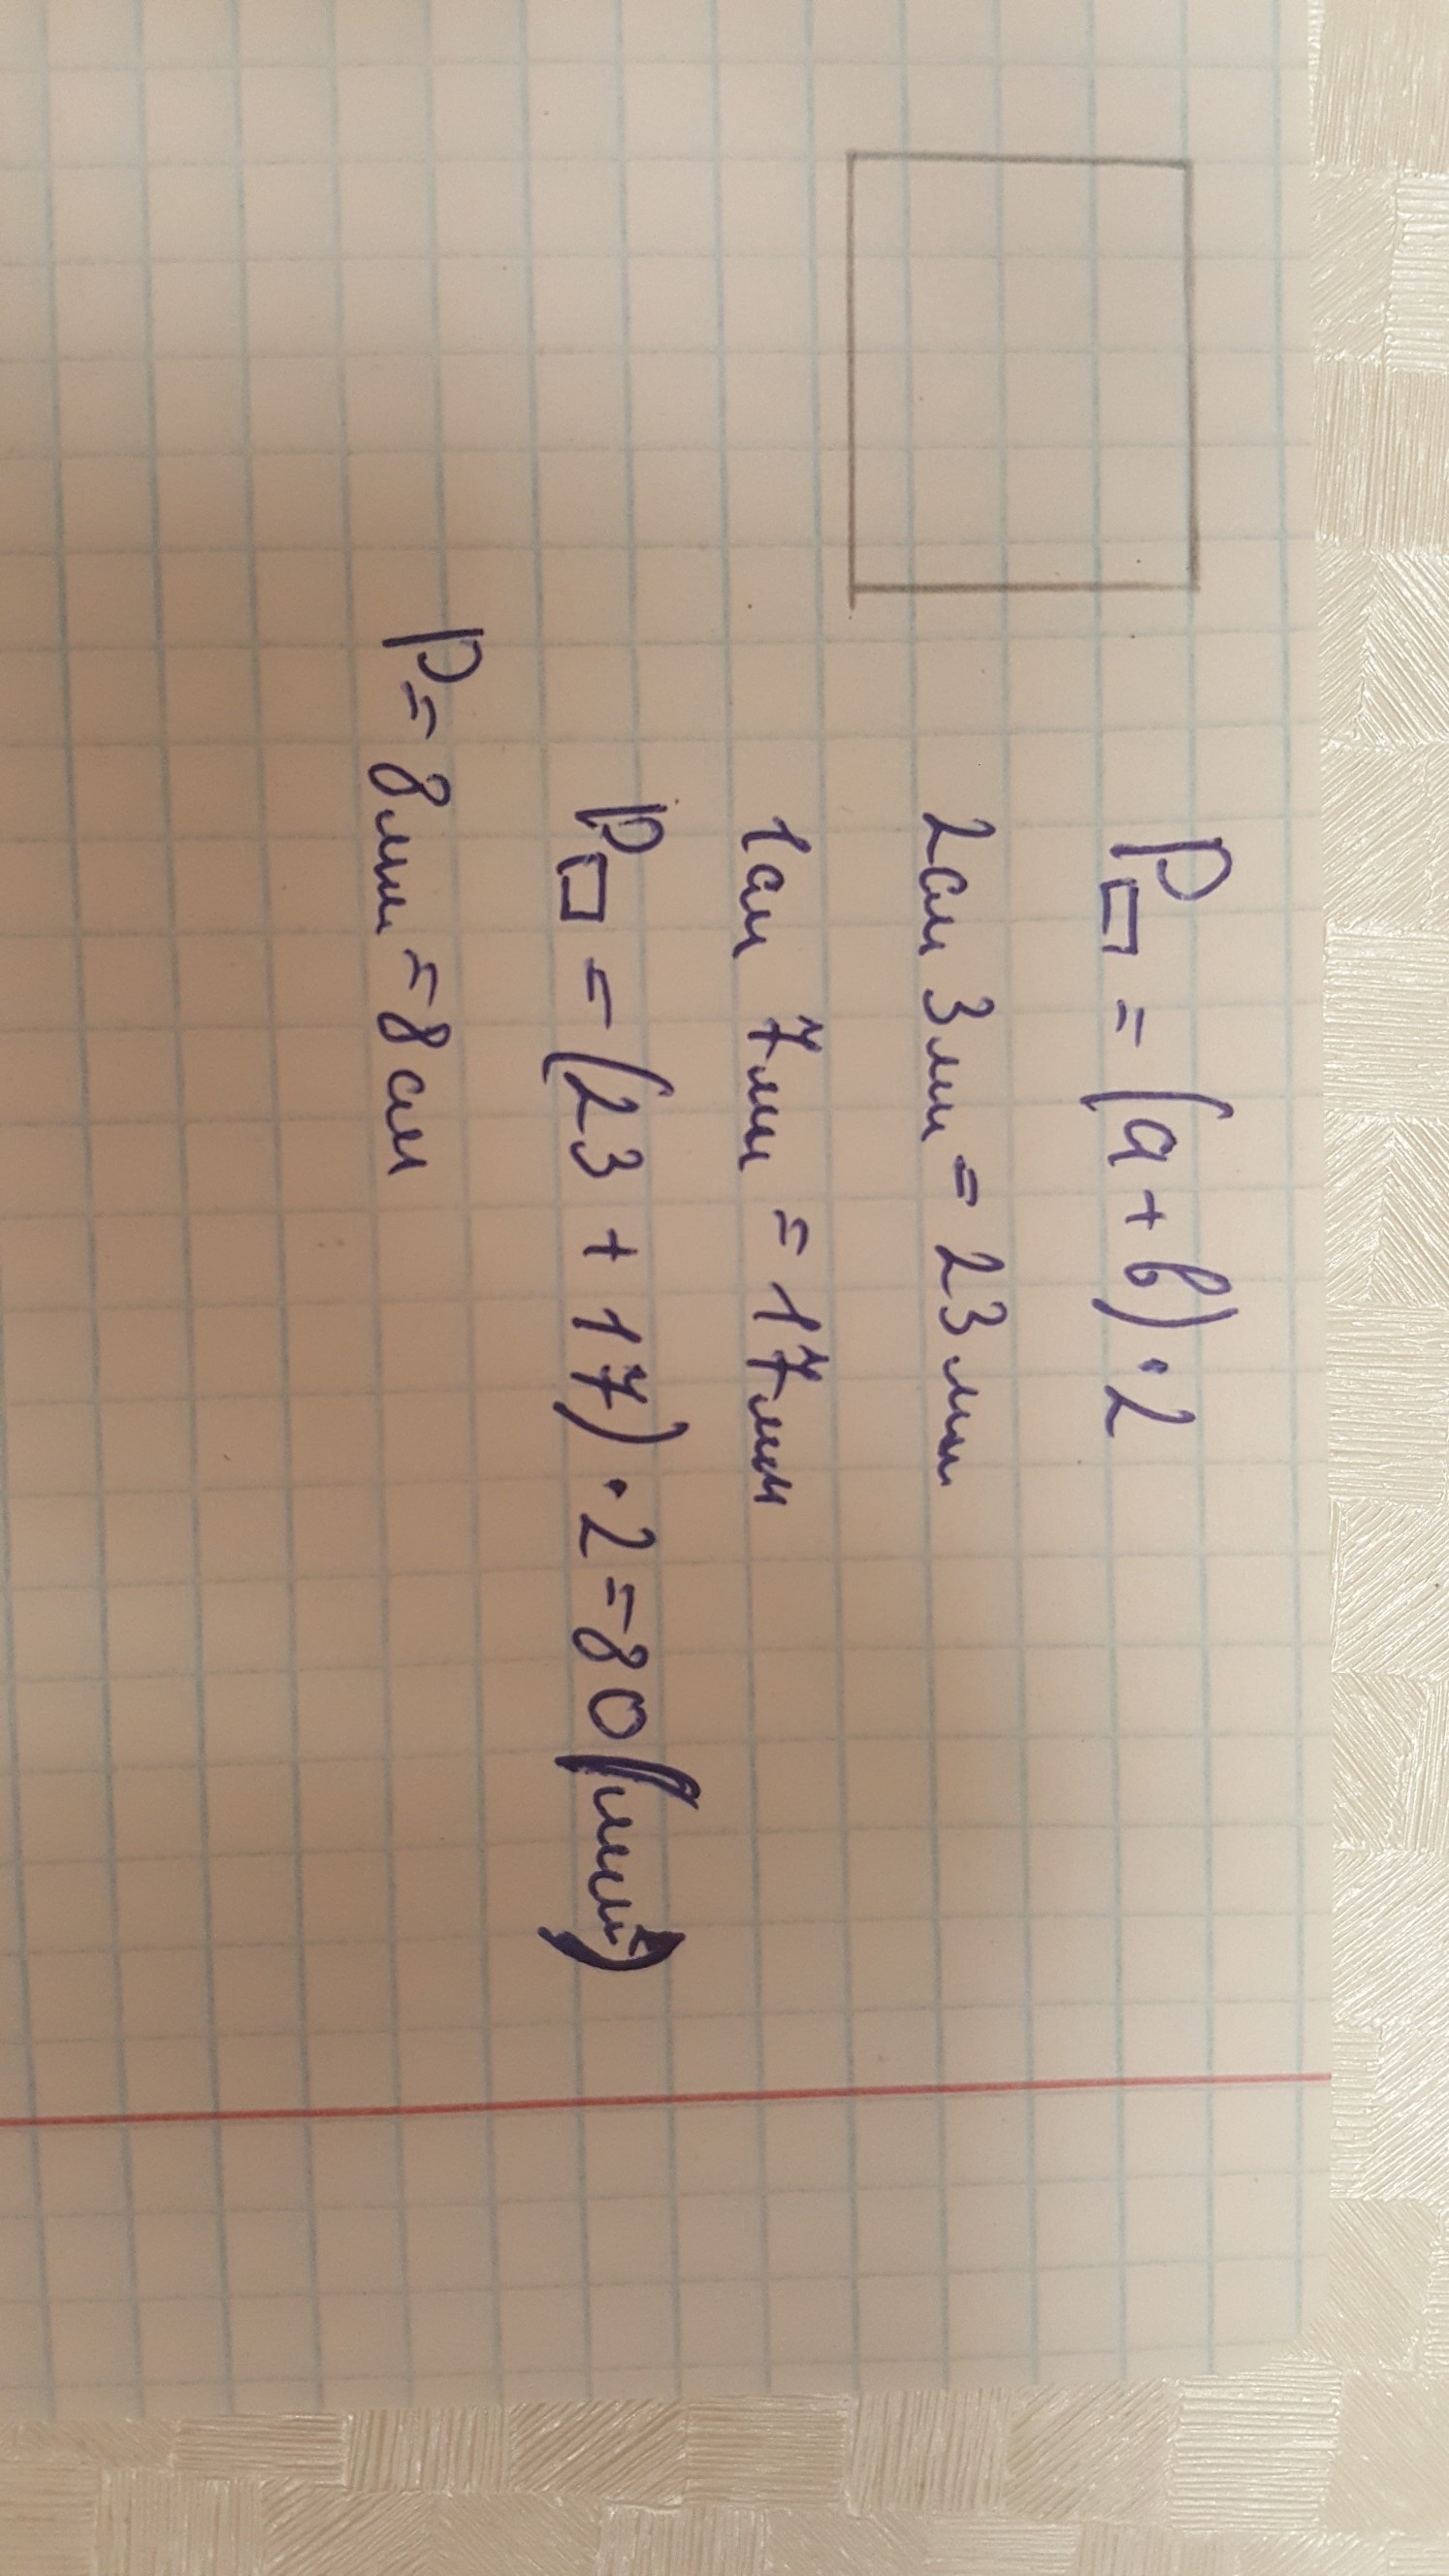 P□ = (a + b) · 2
2см 3мм = 23мм
1см 7мм = 17мм
P□ = (23 + 17) · 2 = 80 (мм)
P = 8мм = 8см